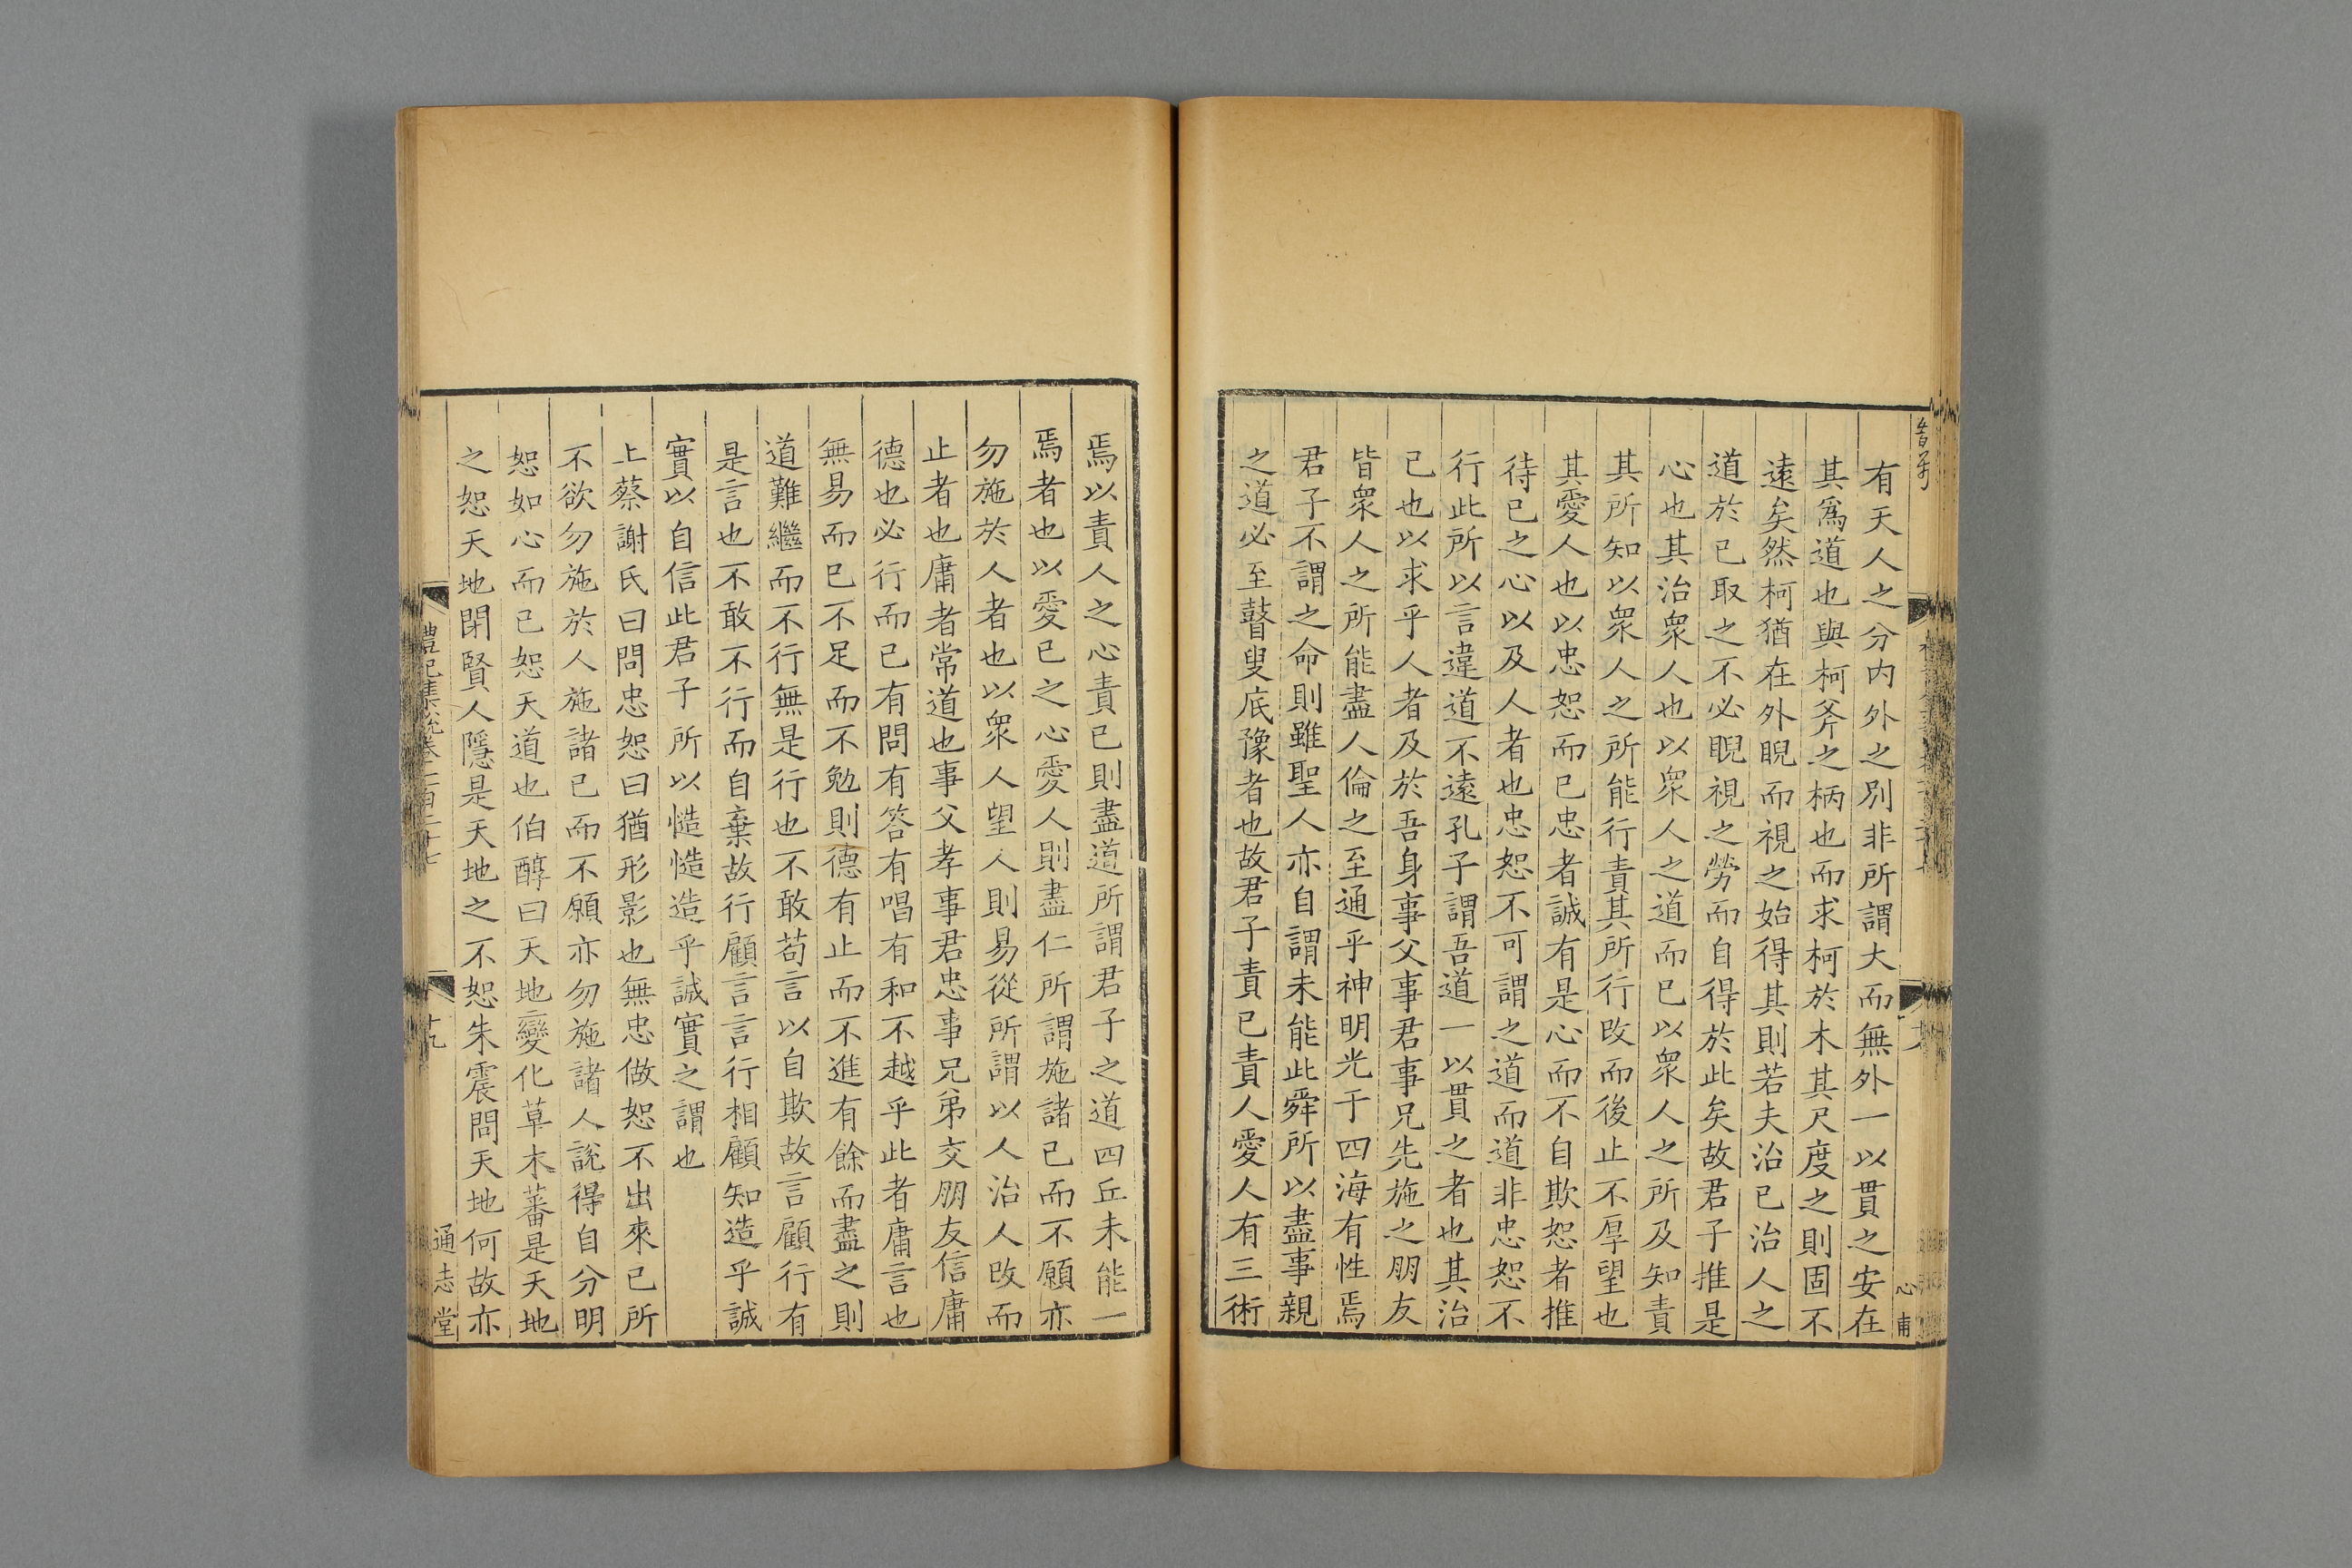 有天人之分内外之別非所謂大而無外一以貫之安在
其爲道也與柯斧之柄也而求柯於木其尺度之則固不
遠矣然柯猶在外睨而視之始得其則若夫治已治人之
道於已取之不必睨視之勞而自得於此矣故君子推是
心也其治衆人也以衆人之道而已以衆人之所及知責
其所知以衆人之所能行責其所行改而後止不厚望也
其愛人也以忠恕而已忠者誠有是心而不自欺恕者推
待已之心以及人者也忠恕不可謂之道而道非忠恕不
行此所以言違道不遠孔子謂吾道一以貫之者也其治
已也以求乎人者及於吾身事父事君事兄先施之朋友
皆衆人之所能盡人倫之至通乎神明光于四海有性焉
君子不謂之命則雖聖人亦自謂未能此舜所以盡事親
之道必至瞽叟底豫者也故君子責已責人愛人有三術
心甫
焉以責人之心責已則盡道所謂君子之道四丘未能一
焉者也以愛已之心愛人則盡仁所謂施諸已而不願亦
勿施於人者也以衆人望人則易從所謂以人治人改而
止者也庸者常道也事父孝事君忠事兄弟交朋友信庸
德也必行而已有問有答有唱有和不越乎此者庸言也
無易而已不足而不勉則德有止而不進有餘而盡之則
道難繼而不行無是行也不敢苟言以自欺故言顧行有
是言也不敢不行而自棄故行顧言言行相顧知造乎誠
實以自信此君子所以慥慥造乎誠實之謂也
上蔡謝氏曰問忠恕曰猶形影也無忠做恕不出來已所
不欲勿施於人施諸已而不願亦勿施諸人說得自分明
恕如心而已恕天道也伯醇曰天地變化草木蕃是天地
之恕天地閉賢人隱是天地之不恕朱震問天地何故亦
禮記集說卷一百二十七
十九
通志堂